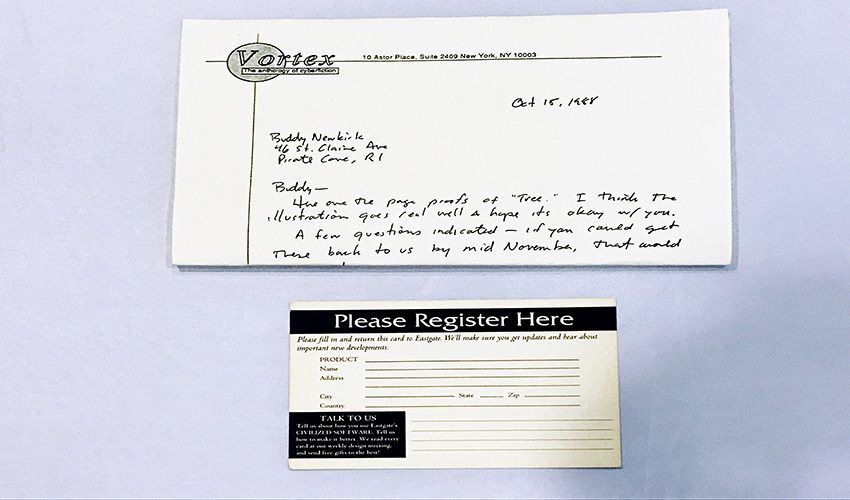 Vortex
The anthology of cyberfiction
10 Astor Place, Suite 2409 New York, NY 10003
Oct 15, 1988
Buddy Newkirk
46 St. Claire Ave
Pirate Cove, RI
Buddy—
Here are the page proofs of "Tree." I think the
illustration goes real well & hope it's okay w/ you.
A few questions indicated — if you could get
these back to us by mid November, that would
Please Register Here
Please fill in and return this card to Eastgate. We'll make sure you get updates and hear about
important new developments.
PRODUCT
Name
Address
City State Zip
Country
TALK TO US
Tell us about how you use Eastgate's
CIVILIZED SOFTWARE. Tell us
how to make it better. We read every
card at our weekly design meeting,
and send free gifts to the best!